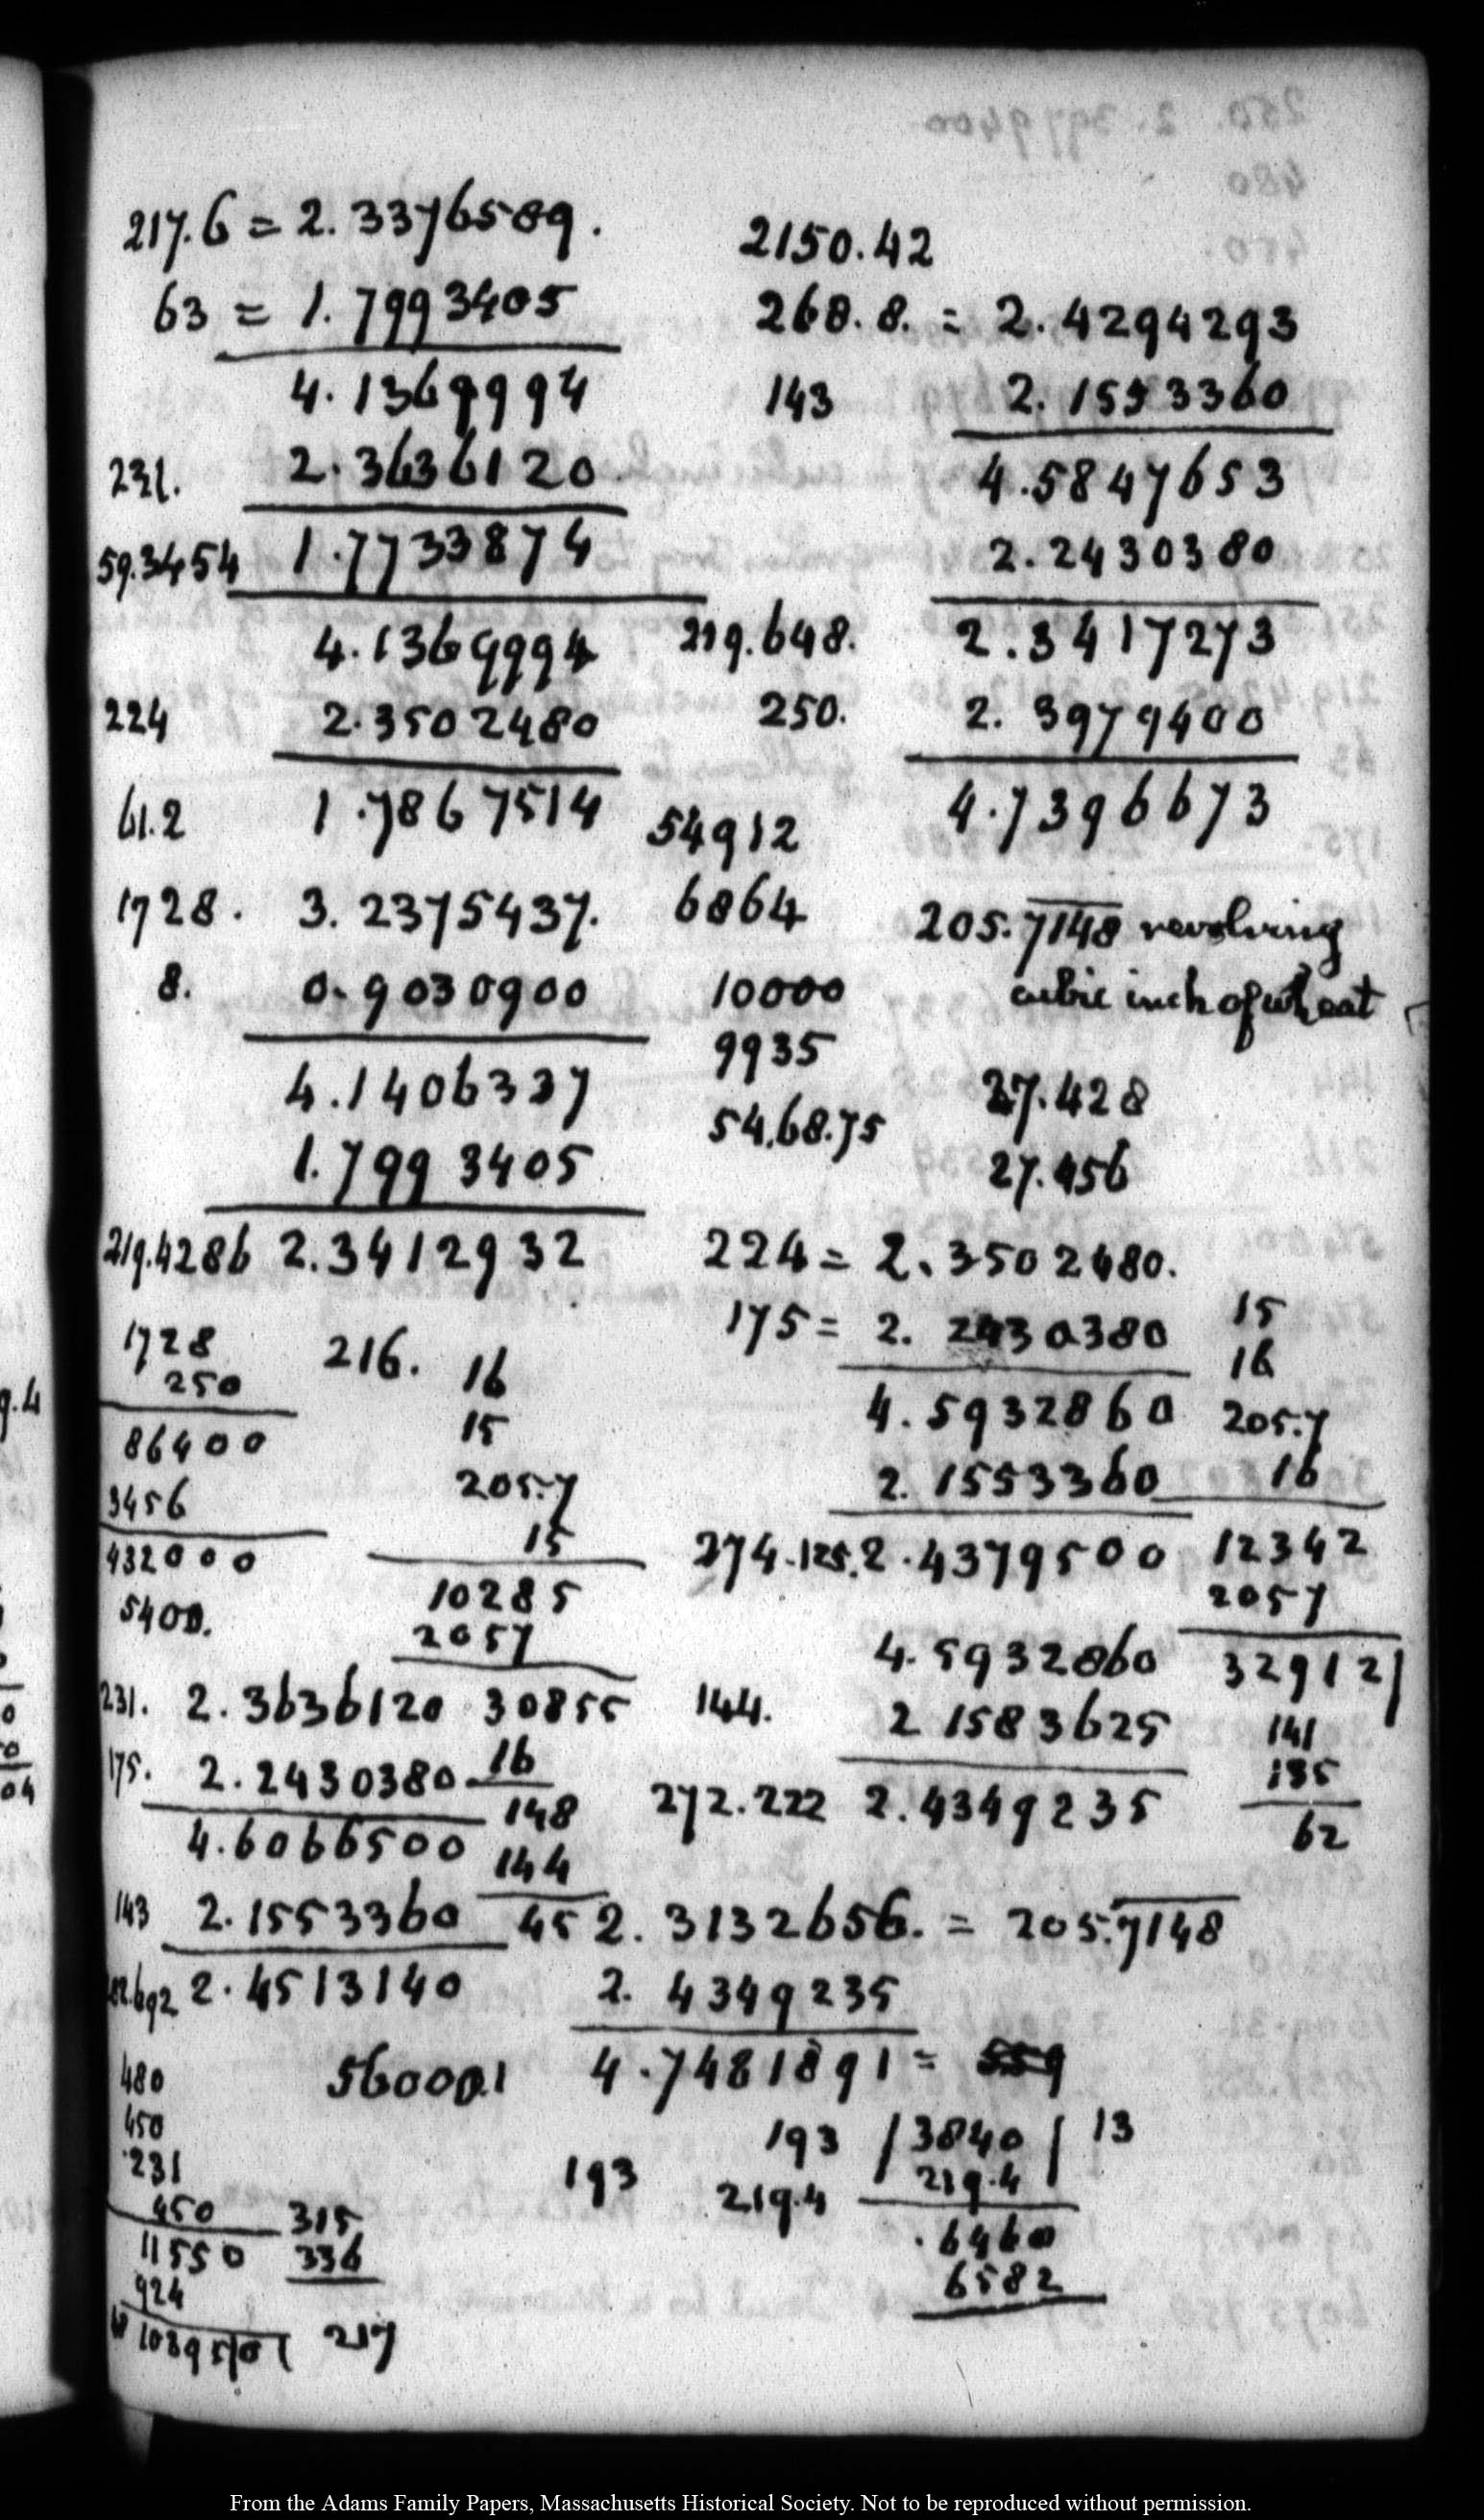 217.6 = 2.3376589.
63 = 1.7993405
4.1369994
231. 2.3636120
59.3454 1.7733874
4.1369994
224 2.3502480
61.2 1.7867514
1728. 3.2375437.
8. 0.9030900
4.1406337
1.7993405
219.4286 2.3412932
1728
250
86400
3456
432000
5400.
216.
16
15
205.7
15
10285
2057
30855
16
148
144
45
231. 2.3636120
175. 2.2430380
4.6066500
143 2.1553360
2.4513140
480
450
231
450
11550
924
103950
315
336
217
560001
2150.42
268.8. = 2.4294293
143 2.1553360
4.5847653
2.2430380
219.648. 2.3417273
250. 2.3979400
54912 4.7396673
6864
10000
9935
54.68.75
205.7148 revolving
cubic inch of wheat
27.428
27.456
224 = 2.3502480.
175 = 2.2430380
4.5932860
2.1553360
274.125. 2.4379500
4.5932860
144. 2 1583625
272.222 2.4349235
15
16
205.7
16
12342
2057
32912
141
135
62
2.3132656. = 205.7148
2.4349235
4.7481891 = 559
193
193 / 3840 / 13
219.4 219.4
6460
6582
From the Adams Family Papers, Massachusetts Historical Society. Not to be reproduced without permission.